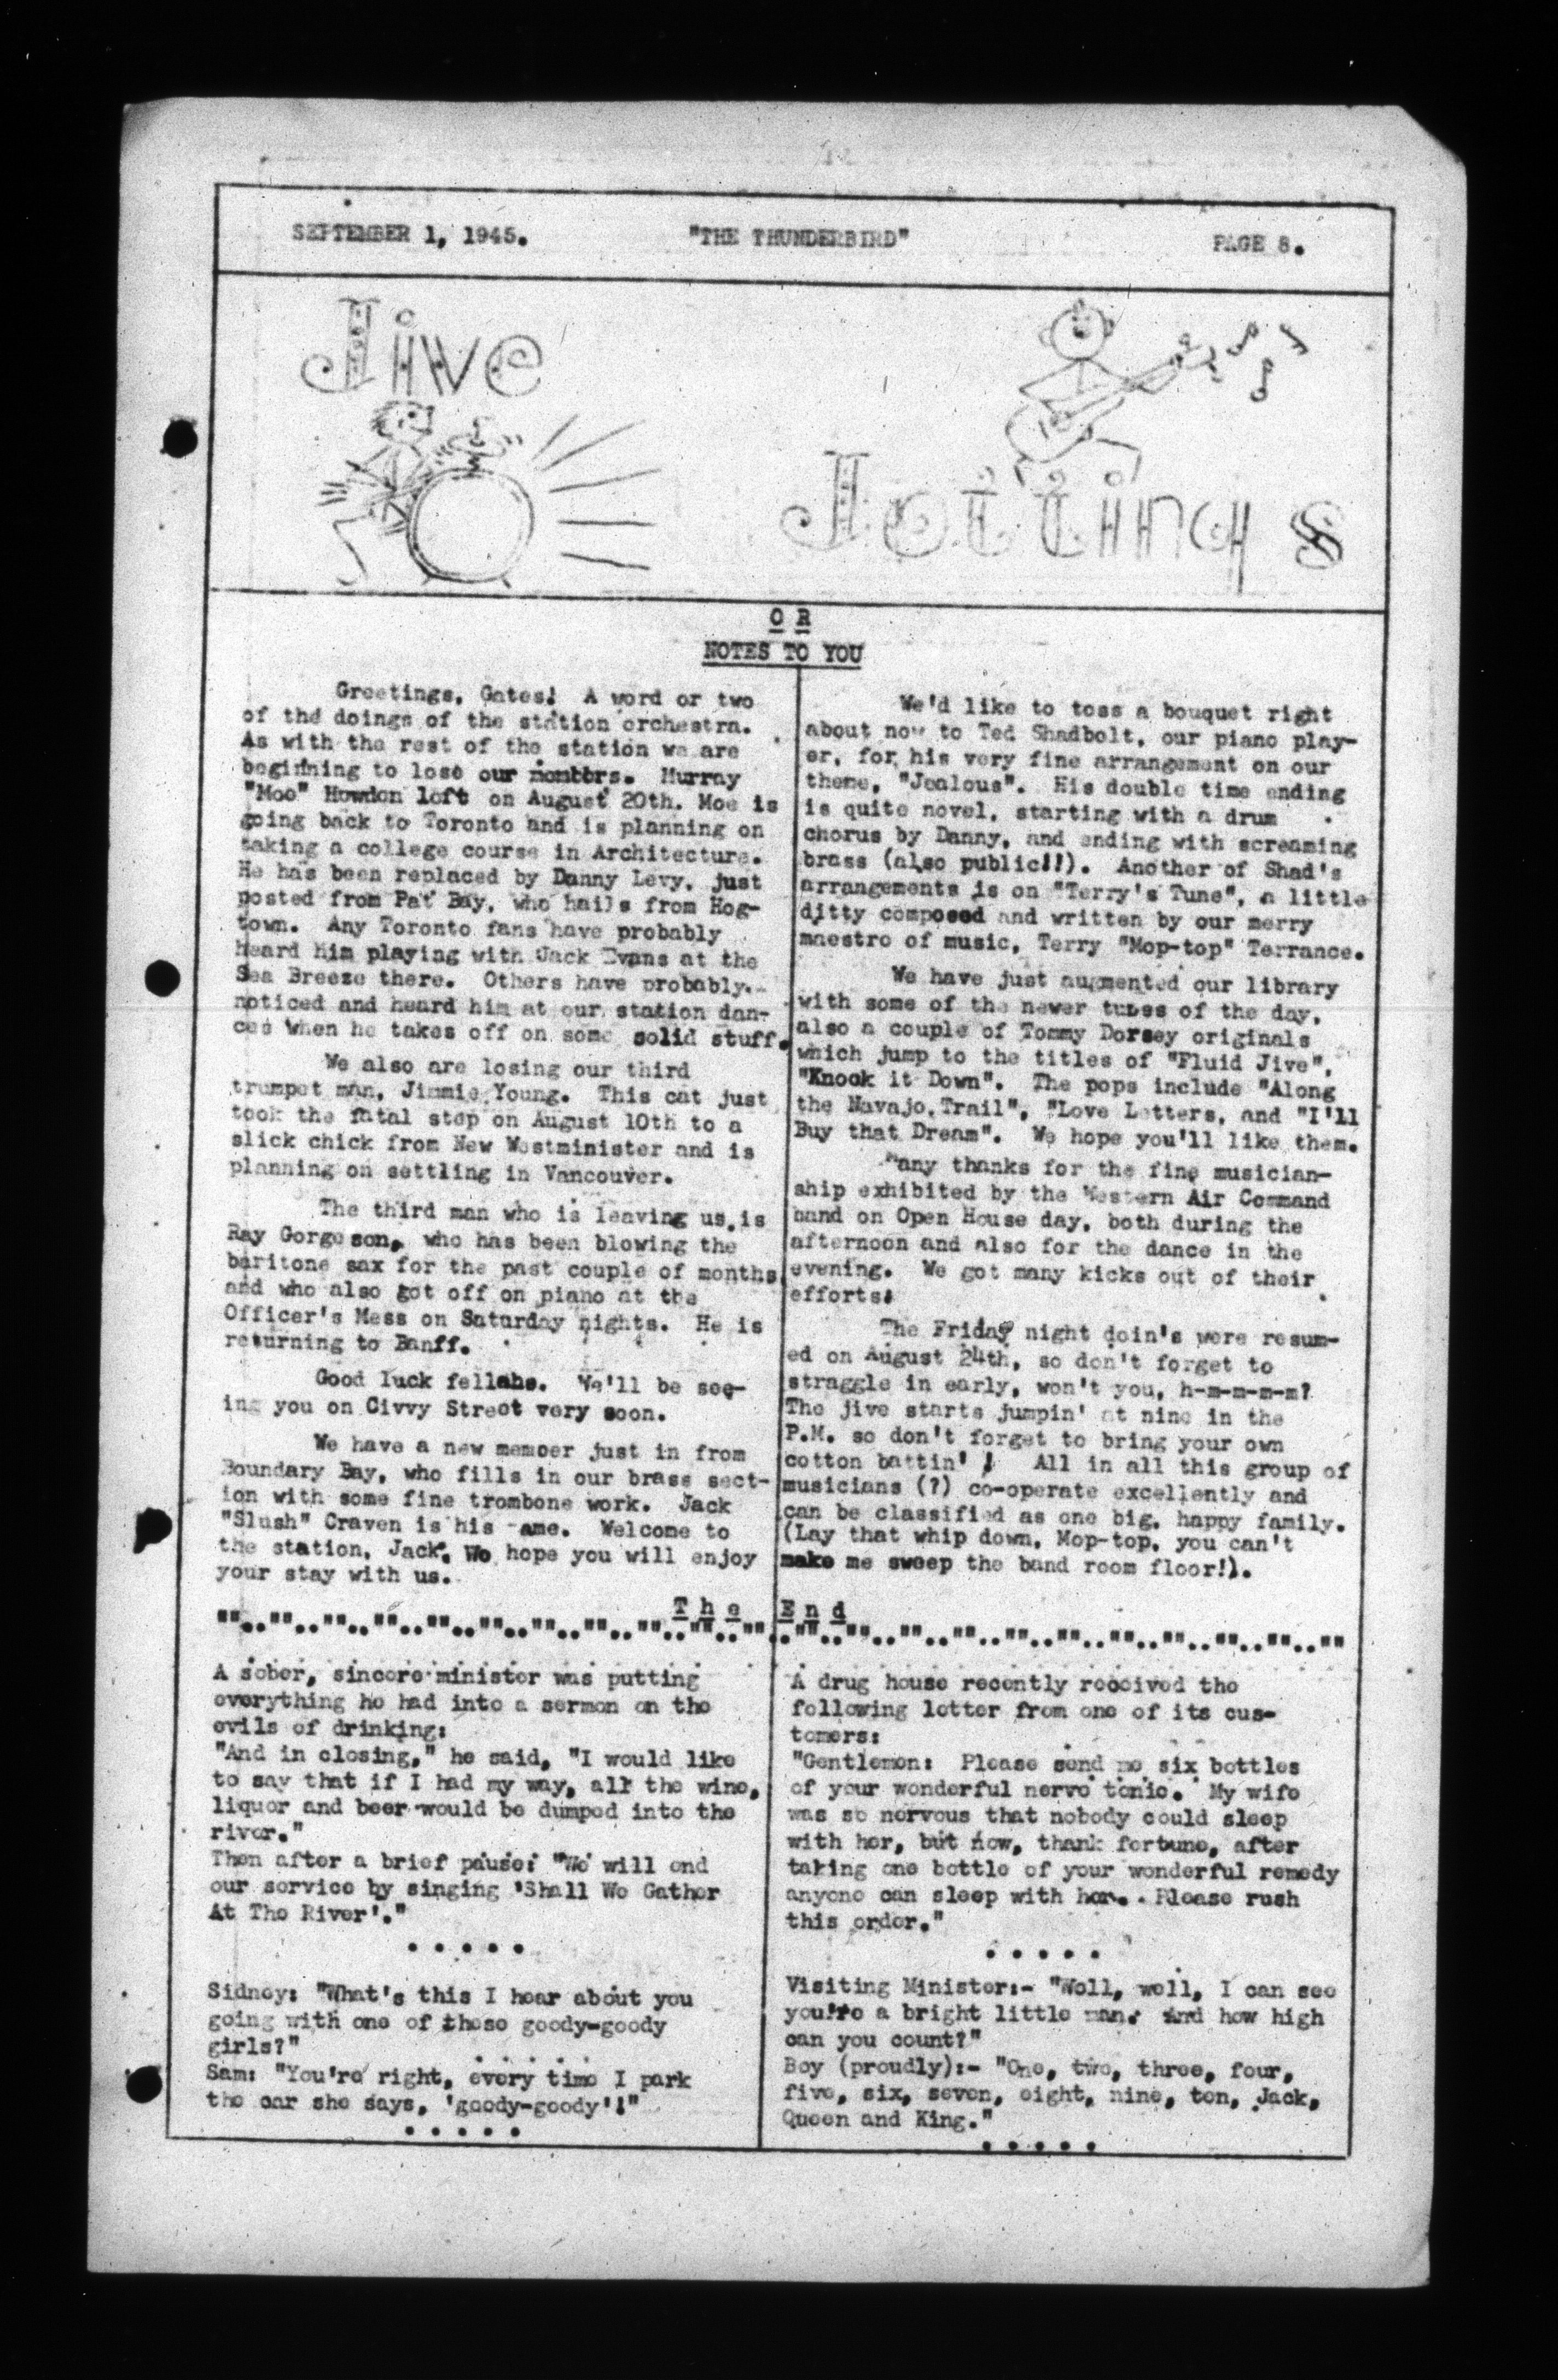 SEPTEMBER 1, 1945. "THE THUNDERBIRD" PAGE 8.
Jive
Jottings
O R
NOTES TO YOU
Greetings, Gates! A word or two
of the doings of the station orchestra.
As with the rest of the station we are
beginning to lose our members. Murray
"Moe" Howdon left on August 20th. Moe is
going back to Toronto and is planning on
taking a college course in Architecture.
He has been replaced by Danny Levy, just
posted from Pat Bay, who hails from Hog-
town. Any Toronto fans have probably
heard him playing with Jack Evans at the
Sea Breeze there. Others have probably
noticed and heard him at our station dan-
ces when he takes off on some solid stuff.
We also are losing our third
trumpet man, Jimmie Young. This cat just
took the fatal step on August 10th to a
slick chick from New Westminister and is
planning on settling in Vancouver.
The third man who is leaving us is
Ray Gorgeson, who has been blowing the
baritone sax for the past couple of months
and who also got off on piano at the
Officer's Mess on Saturday nights. He is
returning to Banff.
Good luck fellahs. We'll be see-
ing you on Civvy Street very soon.
We have a new memoer just in from
Boundary Bay, who fills in our brass sect-
ion with some fine trombone work. Jack
"Slush" Craven is his ame. Welcome to
the station, Jack. We hope you will enjoy
your stay with us.
We'd like to toss a bouquet right
about now to Ted Shadbolt, our piano play-
er, for his very fine arrangement on our
theme, "Jealous". His double time ending
is quite novel, starting with a drum
chorus by Danny, and ending with screaming
brass (also public!!). Another of Shad's
arrangements is on "Terry's Tune", a little
ditty composed and written by our merry
maestro of music, Terry "Mop-top" Terrance.
We have just augmented our library
with some of the newer tunes of the day,
also a couple of Tommy Dorsey originals
which jump to the titles of "Fluid Jive",
"Knock it Down". The pops include "Along
the Navajo Trail", "Love Letters, and "I'll
Buy that Dream". We hope you'll like them.
Many thanks for the fine musician-
ship exhibited by the Western Air Command
band on Open House day, both during the
afternoon and also for the dance in the
evening. We got many kicks out of their
efforts!
The Friday night doin's were resum-
ed on August 24th, so don't forget to
straggle in early, won't you, h-m-m-m-m?
The jive starts jumpin' at nine in the
P.M. so don't forget to bring your own
cotton battin' ! All in all this group of
musicians (?) co-operate excellently and
can be classified as one big, happy family.
(Lay that whip down, Mop-top, you can't
make me sweep the band room floor!).
The End
A sober, sincere minister was putting
everything he had into a sermon on the
evils of drinking:
"And in closing," he said, "I would like
to say that if I had my way, all the wine,
liquor and beer would be dumped into the
river."
Then after a brief pause: "We will end
our service by singing 'Shall We Gather
At The River'."
. . . . .
Sidney: "What's this I hear about you
going with one of those goody-goody
girls?"
Sam: "You're right, every time I park
the car she says, 'goody-goody'!"
. . . . .
A drug house recently received the
following letter from one of its cus-
tomers:
"Gentlemen: Please send me six bottles
of your wonderful nerve tonic. My wife
was so nervous that nobody could sleep
with her, but now, thank fortune, after
taking one bottle of your wonderful remedy
anyone can sleep with her. Please rush
this order."
. . . . .
Visiting Minister:- "Well, well, I can see
you're a bright little man. And how high
can you count?"
Boy (proudly):- "One, two, three, four,
five, six, seven, eight, nine, ten, Jack,
Queen and King."
. . . . .